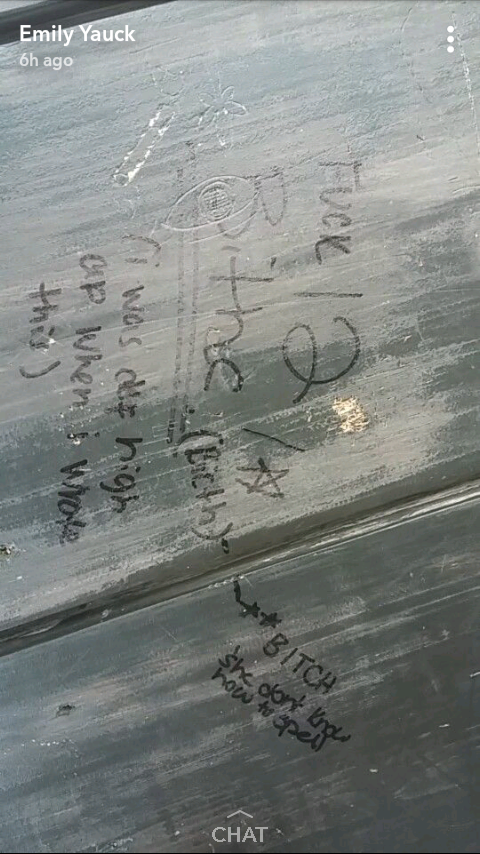 Emily Yauck
6h ago
FUCK 12
Bithc (Bicth)
(i was high
ap when i whote
this)
** BITCH
she dont know
how to spell
CHAT